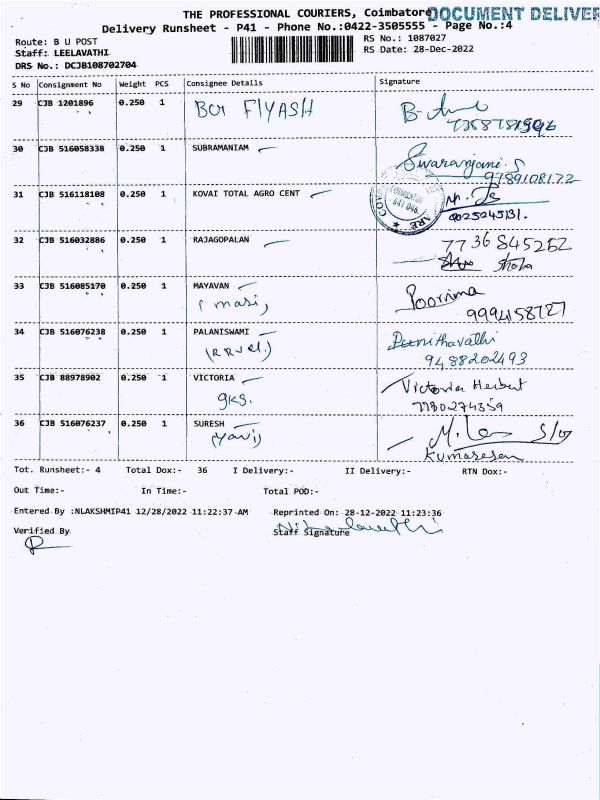 THE PROFESSIONAL COURIERS, Coimbatore
DOCUMENT DELIVER
Delivery Runsheet - P41 - Phone No.:0422-3505555 - Page No.:4
Route: B U POST
RS No.: 1087027
Staff: LEELAVATHI
RS Date: 28-Dec-2022
DRS No.: DCJB108702704
S No Consignment No Weight PCS Consignee Details Signature
29 CJB 1201896 0.250 1 FlYASH
30 CJB 516058338 0.250 1 SUBRAMANIAM Swaranjani.S
9789108172
31 CJB 516118108 0.250 1 KOVAI TOTAL AGRO CENT
COIMBATORE
641 046
9025245131.
32 CJB 516032886 0.250 1 RAJAGOPALAN 7736845252
Shoba
33 CJB 516085170 0.250 1 MAYAVAN Poornima
(masi) 9994158727
34 CJB 516076238 0.250 1 PALANISWAMI Punithavathi
9488202493
35 CJB 88978902 0.250 1 VICTORIA Victoria Herbert
gks. 7780274359
36 CJB 516076237 0.250 1 SURESH S/o
Kumaresan
Tot. Runsheet:- 4 Total Dox:- 36 I Delivery:- II Delivery:- RTN Dox:-
Out Time:- In Time:- Total POD:-
Entered By :NLAKSHMIP41 12/28/2022 11:22:37 AM Reprinted On: 28-12-2022 11:23:36
Verified By Staff Signature